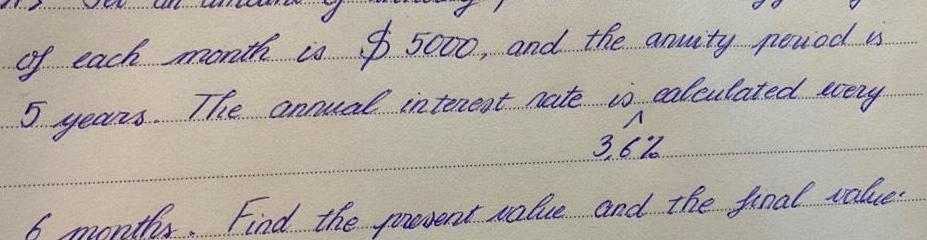 of each month is $ 5000, and the anuity period is
5 years. The annual interest rate is calculated every
^
3,6%
6 months. Find the present value and the final value.